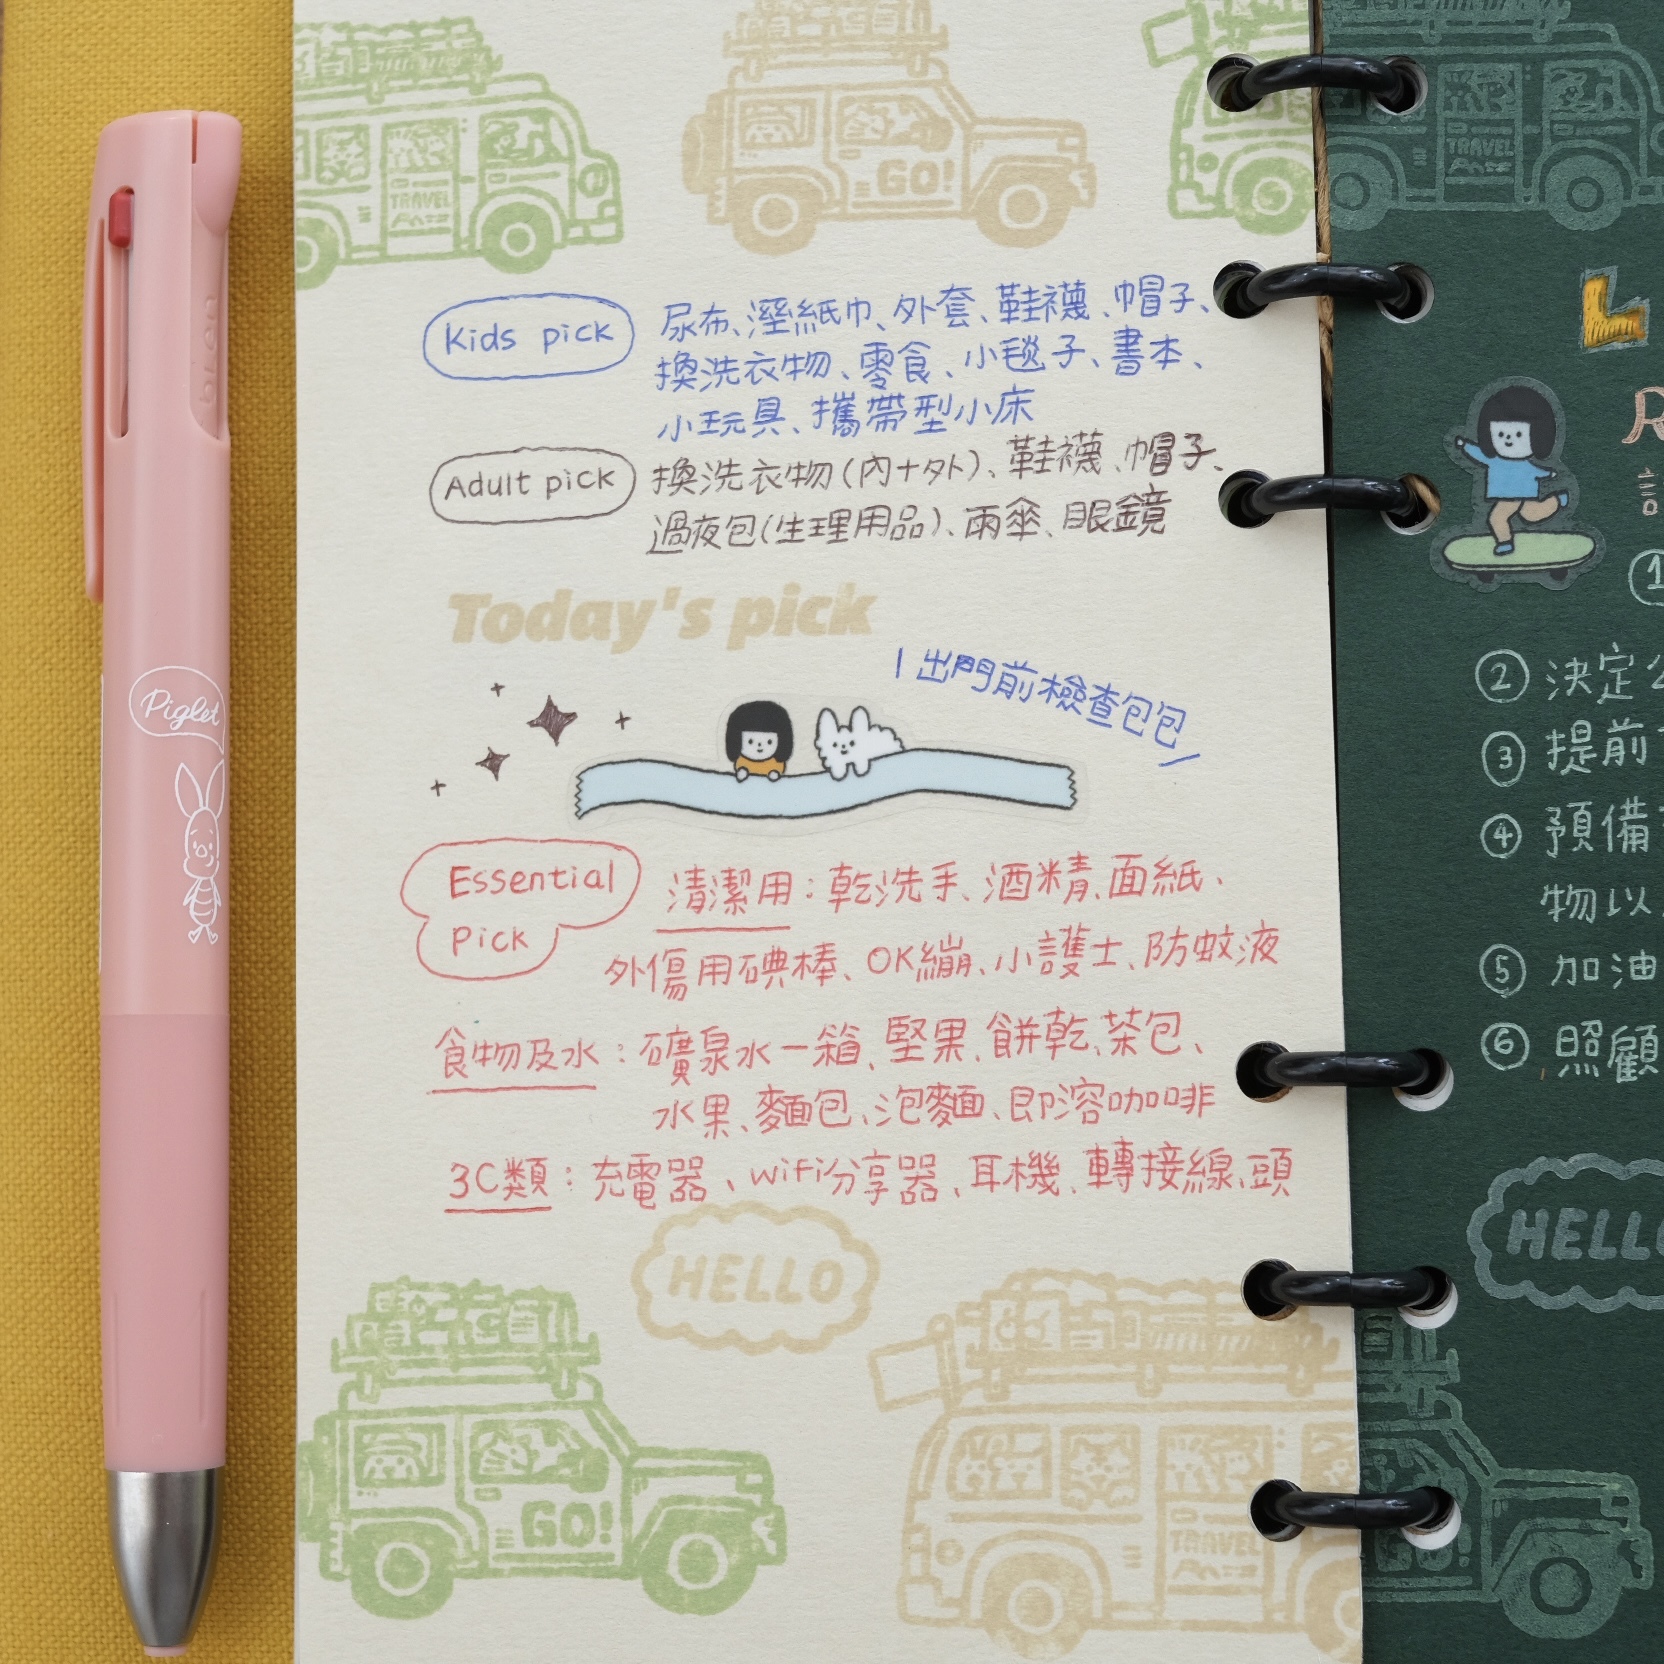 TRAVEL
GO!
TRAVEL
Kids pick
尿布、溼紙巾、外套、鞋襪、帽子、
換洗衣物、零食、小毯子、書本、
小玩具、攜帶型小床
Adult pick
換洗衣物(內+外)、鞋襪、帽子、
過夜包(生理用品)、雨傘、眼鏡
Today's pick
\ 出門前檢查包包 /
Essential
pick
清潔用：乾洗手、酒精、面紙、
外傷用碘棒、OK繃、小護士、防蚊液
食物及水：礦泉水一箱、堅果、餅乾、茶包、
水果、麵包、泡麵、即溶咖啡
3C類：充電器、wifi分享器、耳機、轉接線、頭
HELLO
GO!
TRAVEL
bLen
Piglet
L
R
①
② 決定
③ 提前
④ 預備
物以
⑤ 加油
⑥ 照顧
HELLO
GO!